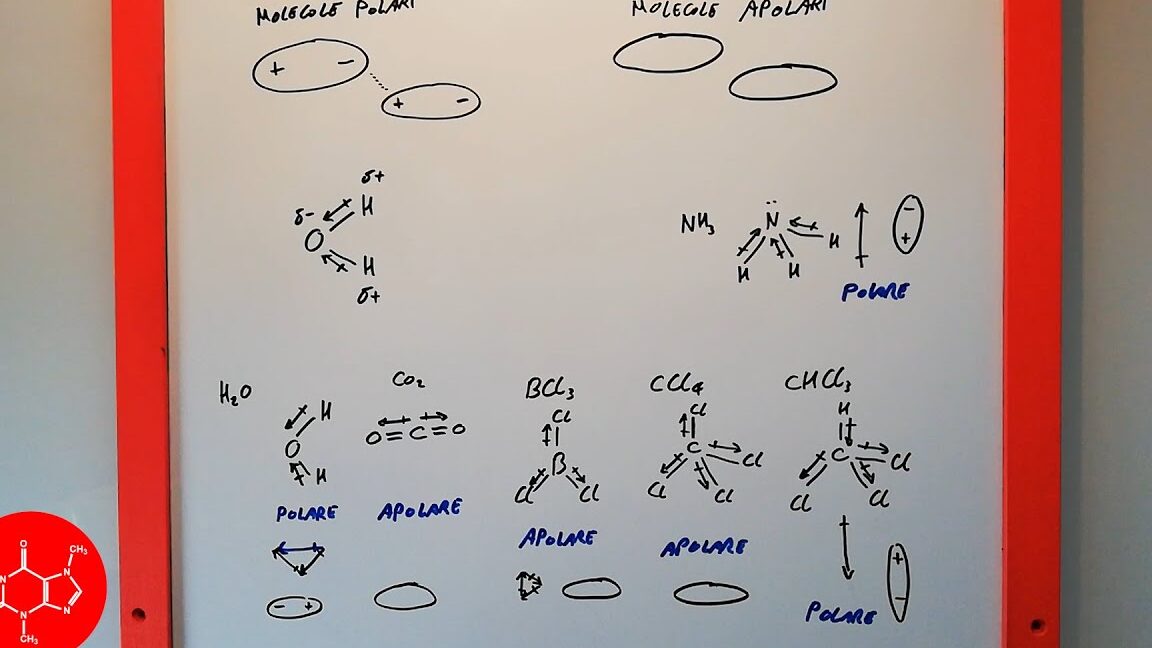 MOLECOLE POLARI
MOLECOLE APOLARI
+ -
+ -
δ+
δ- H
O
H
δ+
NH3
N
H
H
H
-
+
POLARE
H2O
O H
H
POLARE
- +
CO2
O=C=O
APOLARE
BCl3
Cl
B
Cl Cl
APOLARE
CCl4
Cl
C
Cl
Cl Cl
APOLARE
CHCl3
H
C
Cl
Cl Cl
+
-
POLARE
O
CH3
N
N
N
N
CH3